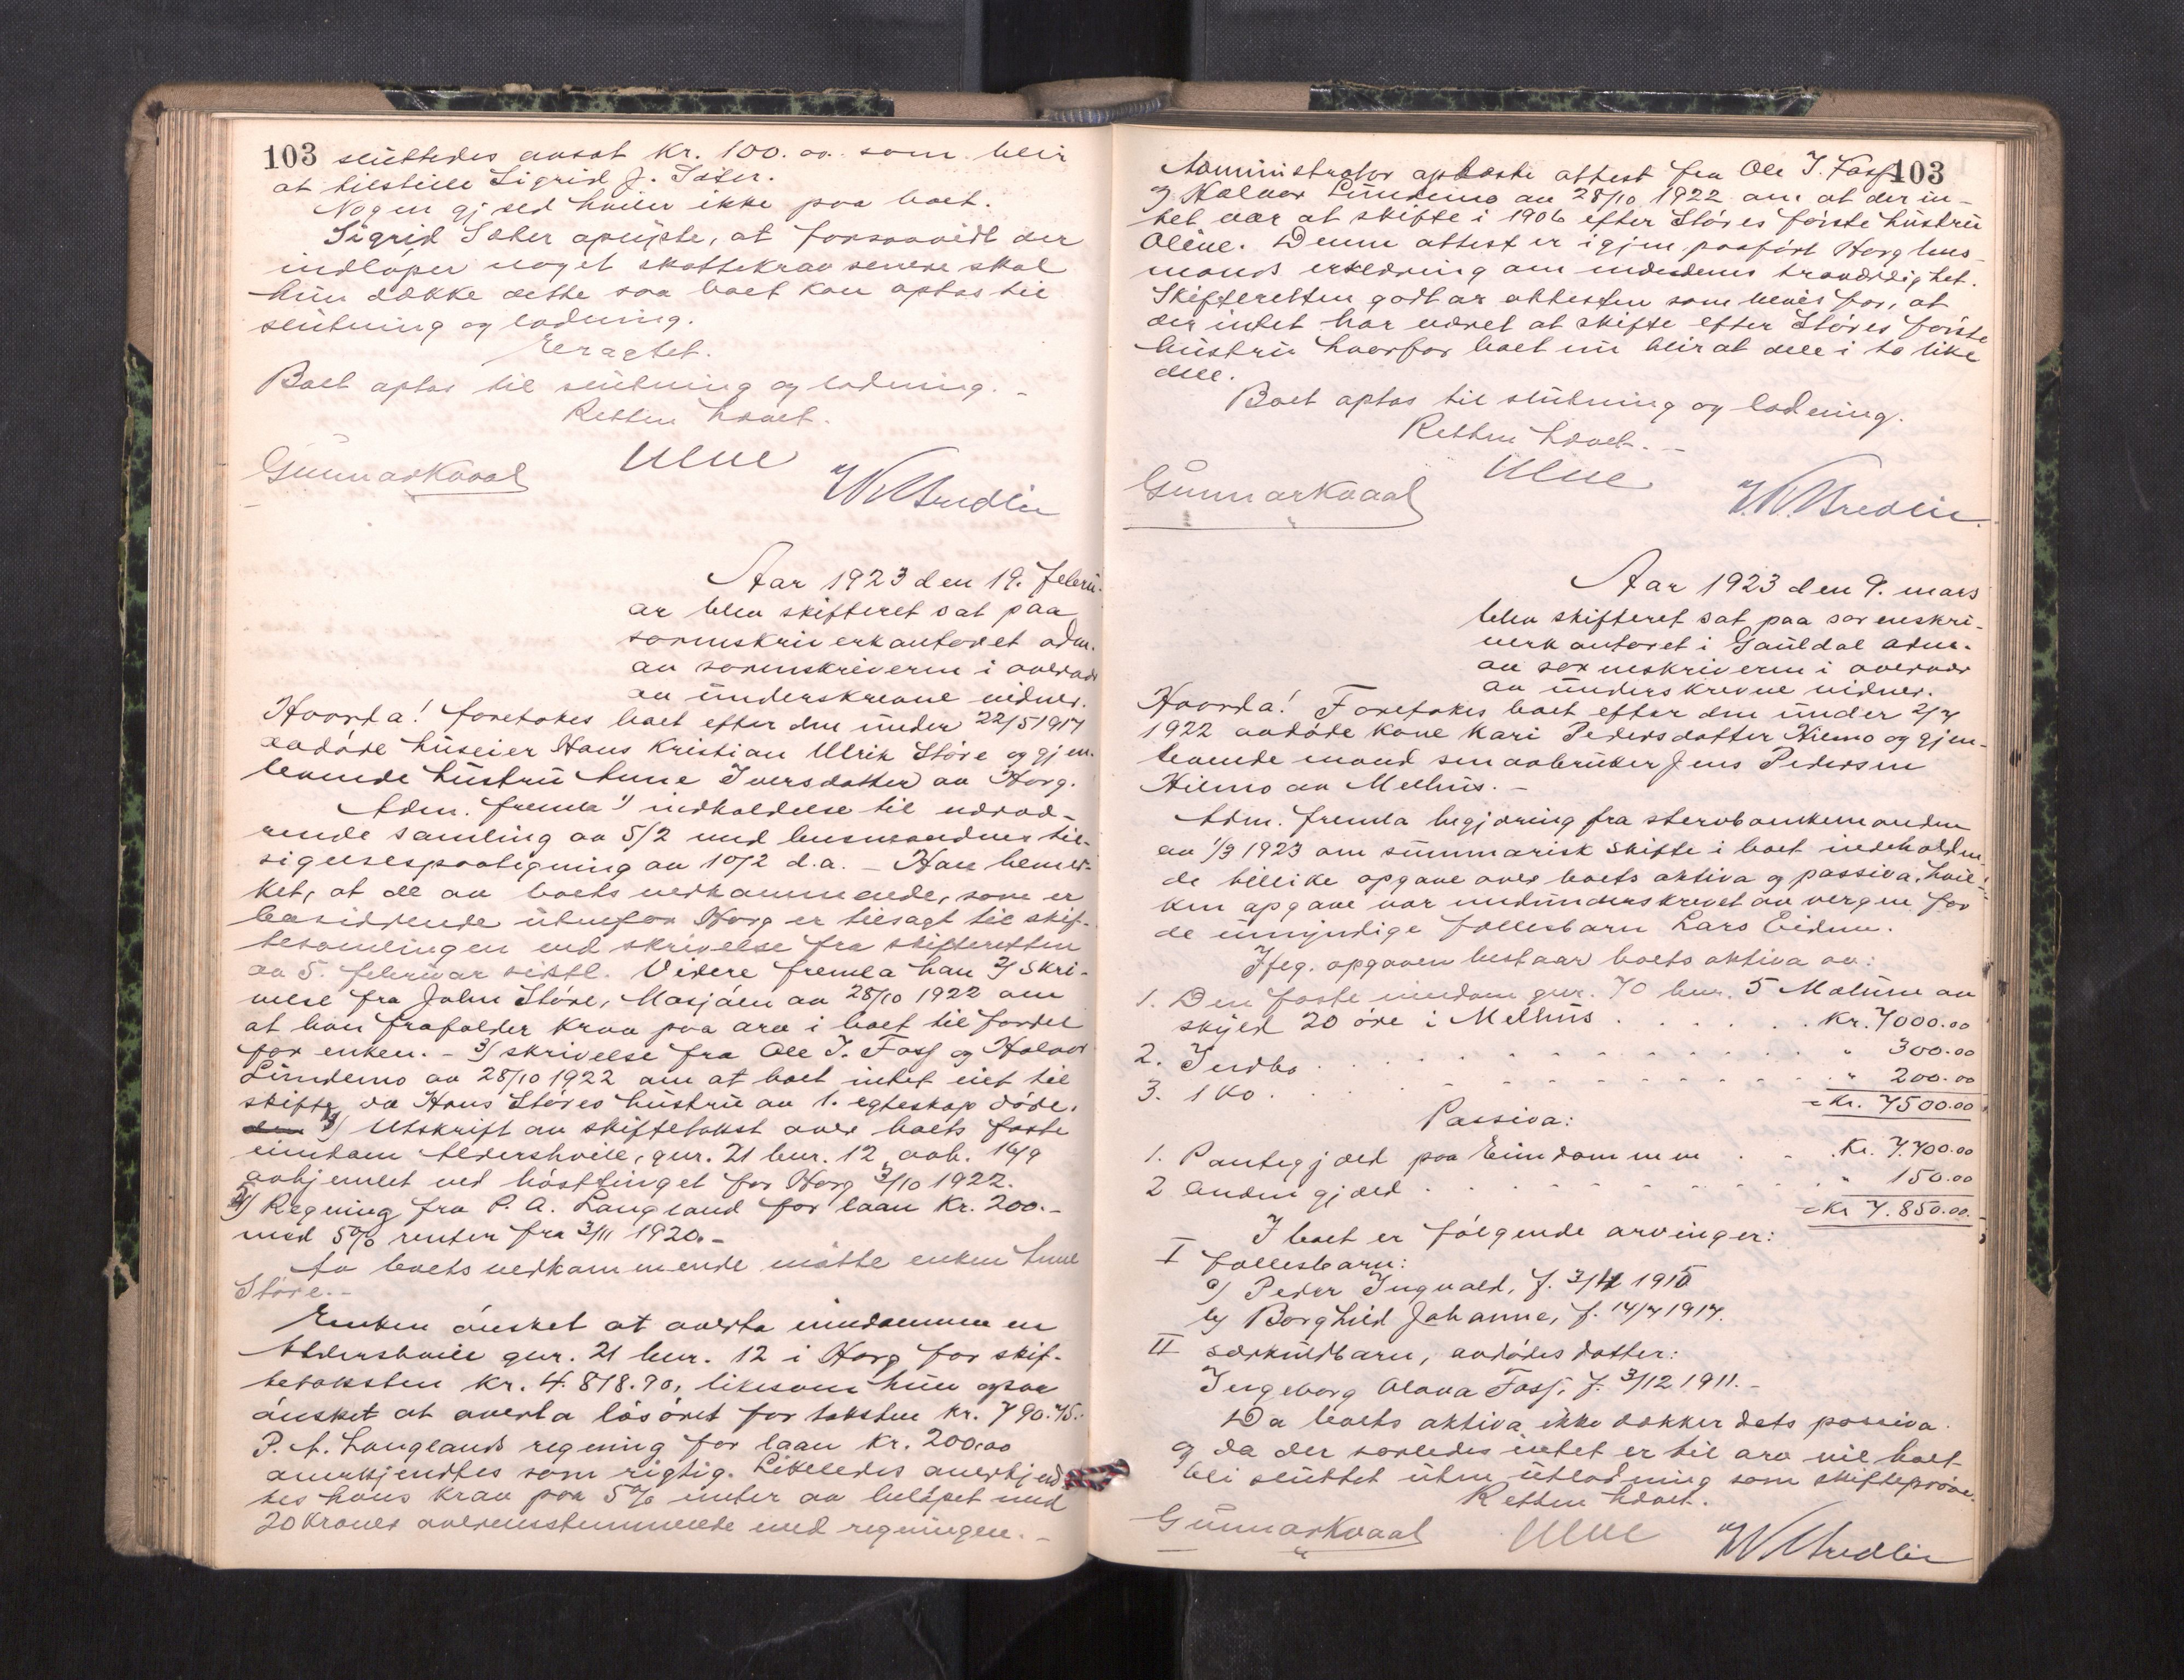 103 sluttedes ansat kr. 100.00. som blir
at tilstille Sigrid J. Sæter.
Nogen gjæld hviler ikke paa boet.
Sigrid Sæter oplyste, at forsaavidt der
indløper noget skattekrav senere skal
hun dække dette saa boet kan optas til
slutning og lodning.
Eragtet.
Boet optas til slutning og lodning. -
Retten hævet.
Gunnar Kvaal
Aar 1923 den 19. febru-
ar blev skifteret sat paa
sorenskriverkontoret adm.
av sorenskriveren i overvær
av underskrevne vidner.
Hvorda! foretokes boet efter den under 22/5 1917
avdøde huseier Hans Kristian Ulrik Støre og gjen-
levende hustru Anne Iversdatter av Horg.
Adm. fremla 1) indkaldelse til nærvæ-
rende samling av 5/2 med lensmandens til-
sigelsespaategning av 10/2 d.a. - Han bemer-
ket, at de av boets vedkommende, som er
bosiddende utenfor Horg er tilsagt til skif-
tesamlingen ved skrivelse fra skifteretten
av 5. februar sidstl. Videre fremla han 2) skri-
velse fra John Støre, Mosjøen av 28/10 1922 om
at han frafalder krav paa arv i boet til fordel
for enken. - 3) skrivelse fra Ole J. Foss og Halvor
Lundemo av 28/10 1922 om at boet intet eiet til
skifte da Hans Støres hustru av 1. egteskap døde.
4) Utskrift av skiftetakst over boets faste
eiendom Aldershvile, gnr. 21 bnr. 12 avh. 16/9
avhjemlet ved høsttinget for Horg 3/10 1922.
5) Regning fra P. A. Langland for laan kr. 200.-
med 5% renter fra 3/11 1920. -
Av boets vedkommende møtte enken Anne
Støre. -
Enken ønsket at overta eiendommen
Aldershvile gnr. 21 bnr. 12 i Horg for skif-
tetaksten kr. 4.818.90, likesom hun ogsaa
ønsket at overta løsøret for taksten kr. 790.75.
P. A. Langlands regning for laan kr. 200.00
anerkjendtes som rigtig. Likeledes anerkjend-
tes hans krav paa 5% renter av beløpet med
20 kroner overensstemmende med regningen. -
Administrator oplæste attest fra Ole J. Foss 103
og Halvor Lundemo av 28/10 1922 om at der in-
tet var at skifte i 1906 efter Støres første hustru
Oline. Denne attest er igjen paaført Horg lens-
mands erklæring om meddelernes troværdighet.
Skifteretten godtar attesten som bevis for, at
der intet har været at skifte efter Støres første
hustru hvorfor boet nu blir at dele i to like
dele.
Boet optas til slutning og lodning.
Retten hævet. -
Gunnar Kvaal
Aar 1923 den 9. mars
blev skifteret sat paa sorenskri-
verkontoret i Gauldal adm.
av sorenskriveren i overvær
av underskrevne vidner.
Hvorda! Foretokes boet efter den under 2/7
1922 avdøde kone Kari Pedersdatter Kiemo og gjen-
levende mand smaabruker Jens Pedersen
Kiemo av Melhus. -
Adm. fremla begjæring fra sterv­boenkemanden
av 1/3 1923 om summarisk skifte i boet indeholden-
de tillike opgave over boets aktiva og passiva, hvil-
ken opgave var medunderskrevet av vergen for
de umyndige fællesbarn Lars Eidem.
Ifølg. opgaven bestaar boets aktiva av:
1. Den faste eiendom gnr. 70 bnr. 5 Molune av
skyld 20 øre i Melhus . . . . . . Kr. 7000.00
2. Indbo . . . . . . . . . . . " 300.00
3. 1 ko . . . . . . . . . . . " 200.00
= Kr. 7500.00
Passiva:
1. Pantegjæld paa Eiendommen . . . Kr. 7.700.00
2 Anden gjæld . . . . . . . . . . " 150.00
= Kr 7.850.00.
I boet er følgende arvinger:
I fællesbarn:
a) Peder Ingvald, f. 3/11 1915
b) Borghild Johanne, f. 14/7 1917.
II særkuldbarn, avdødes datter:
Ingeborg Olava Foss, f. 3/12 1911. -
Da boets aktiva ikke dækker dets passiva
og da der saaledes intet er til arv vil boet
bli sluttet uten utlodning som skifteprøve.
Retten hævet.
Gunnar Kvaal